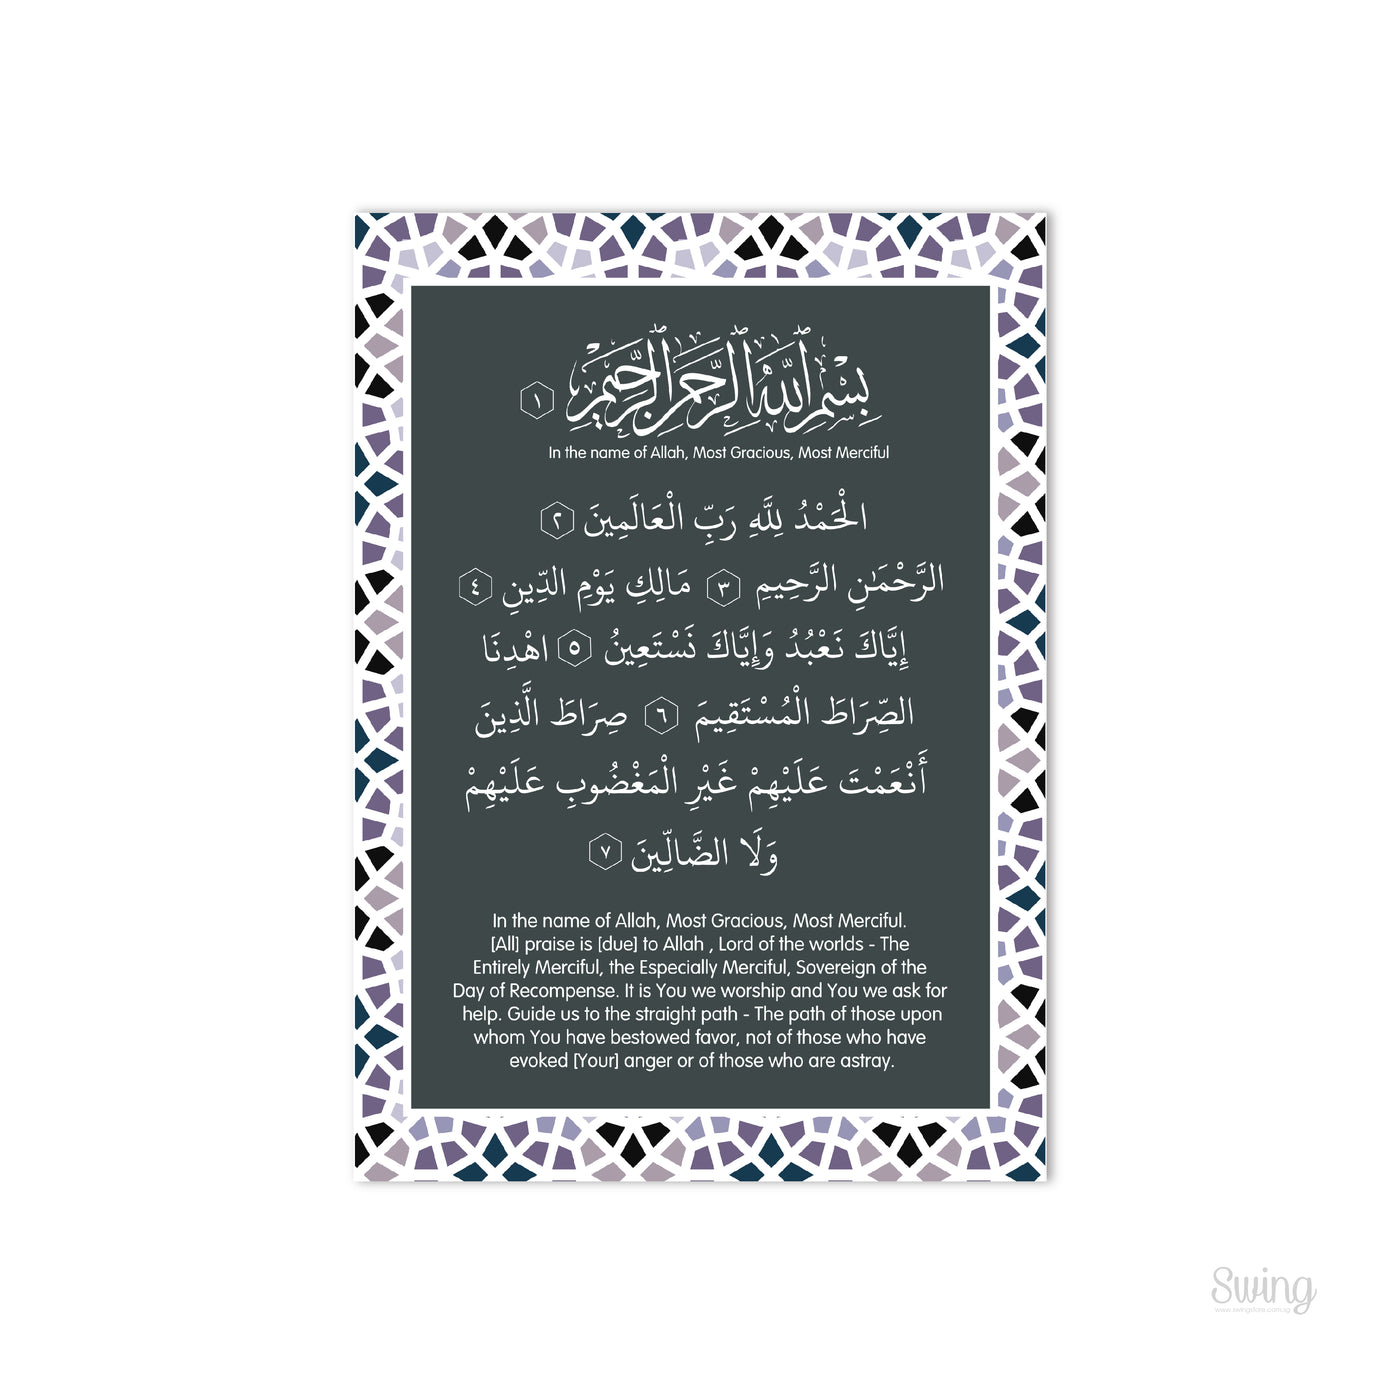 بِسْمِ ٱللَّهِ ٱلرَّحْمَٰنِ ٱلرَّحِيمِ ١
In the name of Allah, Most Gracious, Most Merciful
الْحَمْدُ لِلَّهِ رَبِّ الْعَالَمِينَ ٢
الرَّحْمَٰنِ الرَّحِيمِ ٣ مَالِكِ يَوْمِ الدِّينِ ٤
إِيَّاكَ نَعْبُدُ وَإِيَّاكَ نَسْتَعِينُ ٥ اهْدِنَا
الصِّرَاطَ الْمُسْتَقِيمَ ٦ صِرَاطَ الَّذِينَ
أَنْعَمْتَ عَلَيْهِمْ غَيْرِ الْمَغْضُوبِ عَلَيْهِمْ
وَلَا الضَّالِّينَ ٧
In the name of Allah, Most Gracious, Most Merciful.
[All] praise is [due] to Allah , Lord of the worlds - The
Entirely Merciful, the Especially Merciful, Sovereign of the
Day of Recompense. It is You we worship and You we ask for
help. Guide us to the straight path - The path of those upon
whom You have bestowed favor, not of those who have
evoked [Your] anger or of those who are astray.
Swing
www.swingstore.com.sg